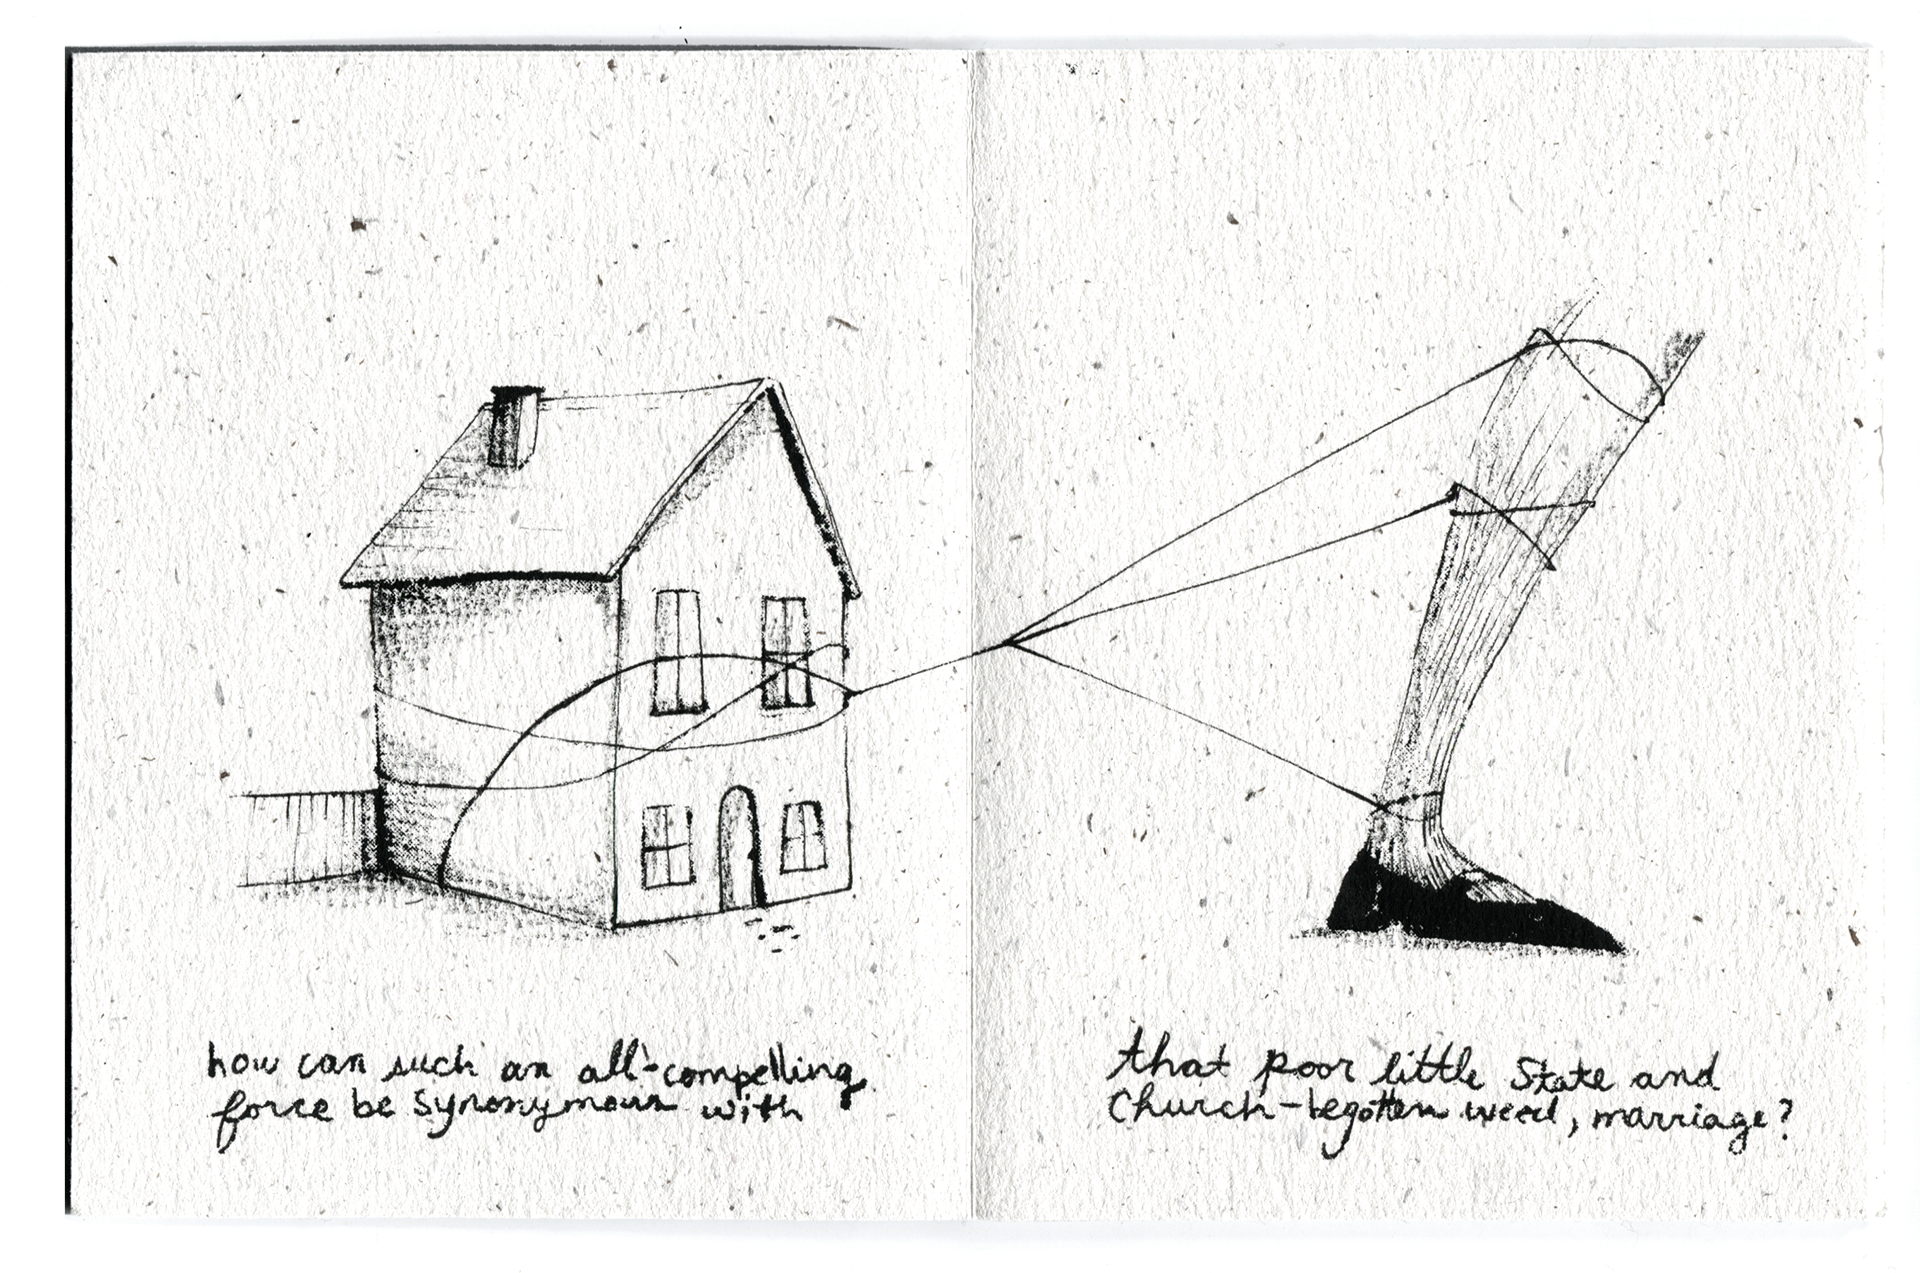 how can such an all-compelling
force be synonymous with
that poor little State and
Church-begotten weed, marriage?